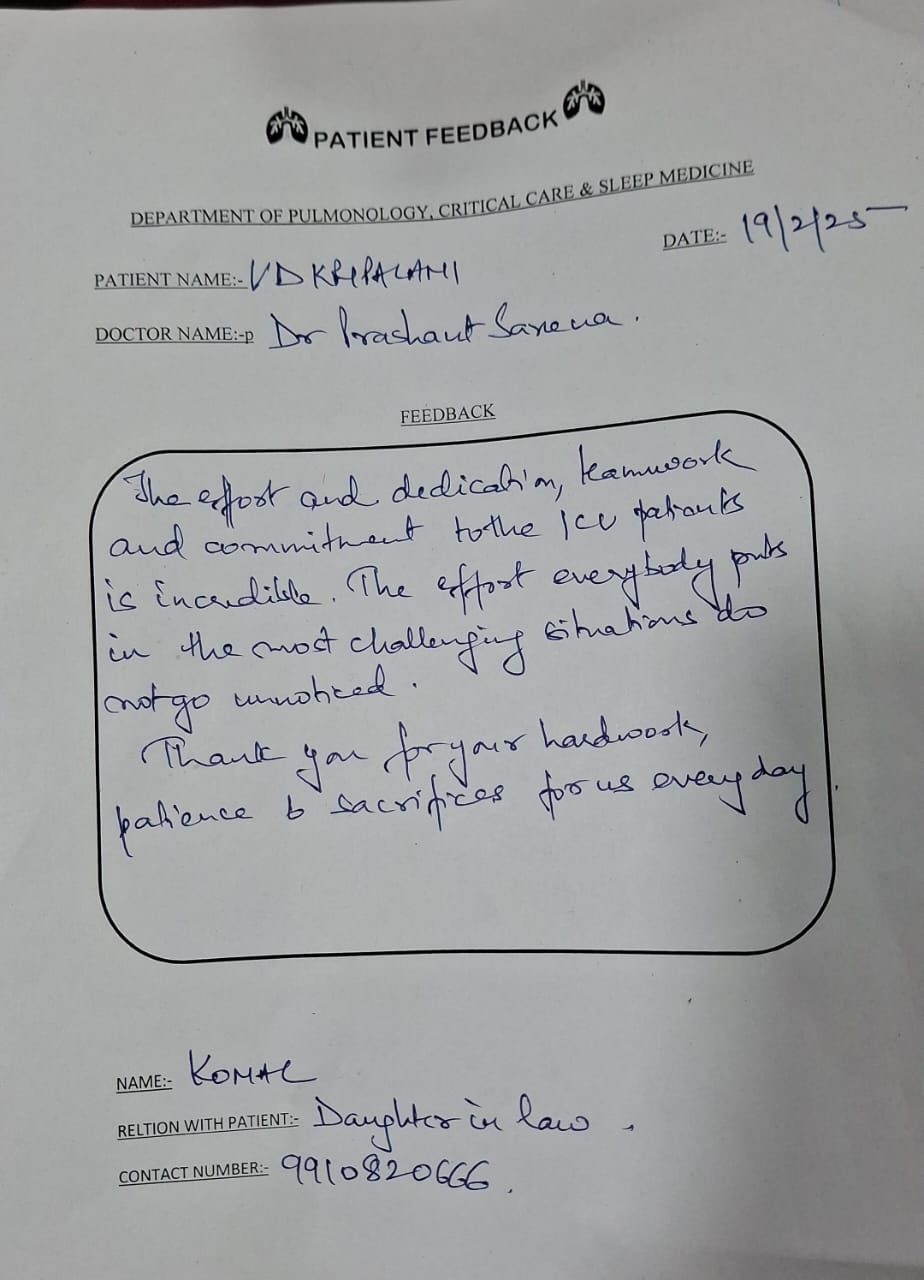 PATIENT FEEDBACK
DEPARTMENT OF PULMONOLOGY, CRITICAL CARE & SLEEP MEDICINE
DATE:- 19/2/25
PATIENT NAME:- VD KRIPALANI
DOCTOR NAME:-p Dr Prashant Saxena.
FEEDBACK
The effort and dedication, teamwork
and commitment to the ICU patients
is incredible. The effort everybody puts
in the most challenging situations do
not go unnoticed.
Thank you for your hardwork,
patience & sacrifices for us every day.
NAME:- KOMAL
RELTION WITH PATIENT:- Daughter in law.
CONTACT NUMBER:- 9910820666.